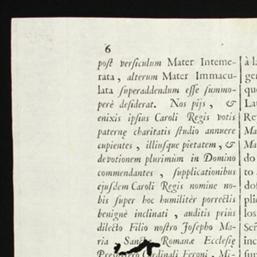 6
post versiculum Mater Inteme-
rata, alterum Mater Immacu-
lata superaddendum esse summo-
perè desiderat. Nos pijs, &
enixis ipsius Caroli Regis votis
paternę charitatis studio annuere
cupientes, illiusque pietatem, &
devotionem plurimùm in Domino
commendantes, supplicationibus
ejusdem Caroli Regis nomine no-
bis super hoc humilitèr porrectis
benignè inclinati, auditis priùs
dilecto Filio nostro Josepho Ma-
ria, Sanctæ Romanæ Ecclesię
Presbytero Cardinali Feroni, Mi-